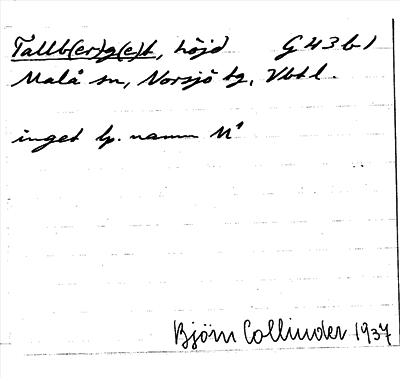 Tallb(er)g(e)t, höjd G43b1
Malå sn, Norsjö tg, Vbtl.
inget lp. namn M¹
Björn Collinder 1937